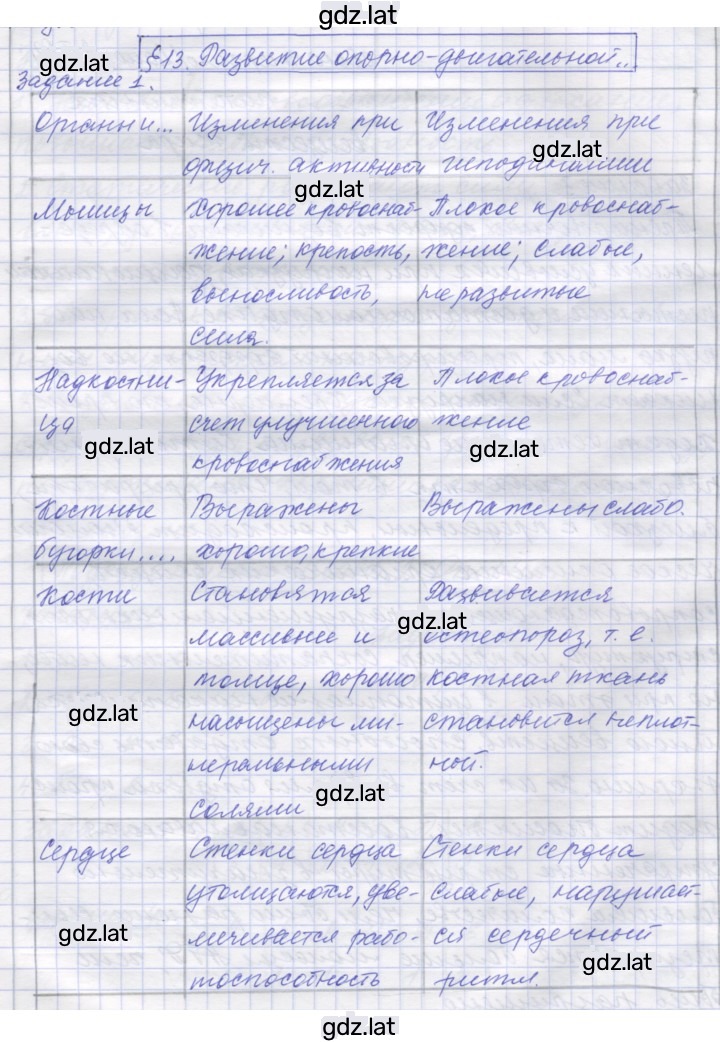 gdz.lat
§13. Развитие опорно-двигательной..
gdz.lat
Задание 1.
Органы и... Изменения при Изменения при
физич. активности гиподинамии
gdz.lat
gdz.lat
Мышцы Хорошее кровоснаб- Плохое кровоснаб-
жение; крепость, жение; слабые,
выносливость, неразвитые
сила.
Надкостни- Укрепляется за Плохое кровоснаб-
ца счет улучшенного жение
gdz.lat gdz.lat
кровоснабжения
Костные Выражены Выражены слабо.
бугорки.... хорошо, крепкие
Кости Становятся Развивается
gdz.lat
массивнее и остеопороз, т. е.
толще, хорошо костная ткань
gdz.lat
насыщены ми- становится неплот-
неральными ной.
gdz.lat
солями
Сердце Стенки сердца Стенки сердца
утолщаются, уве- слабые, нарушает-
gdz.lat
личивается рабо- ся сердечный
gdz.lat
тоспособность ритм.
gdz.lat